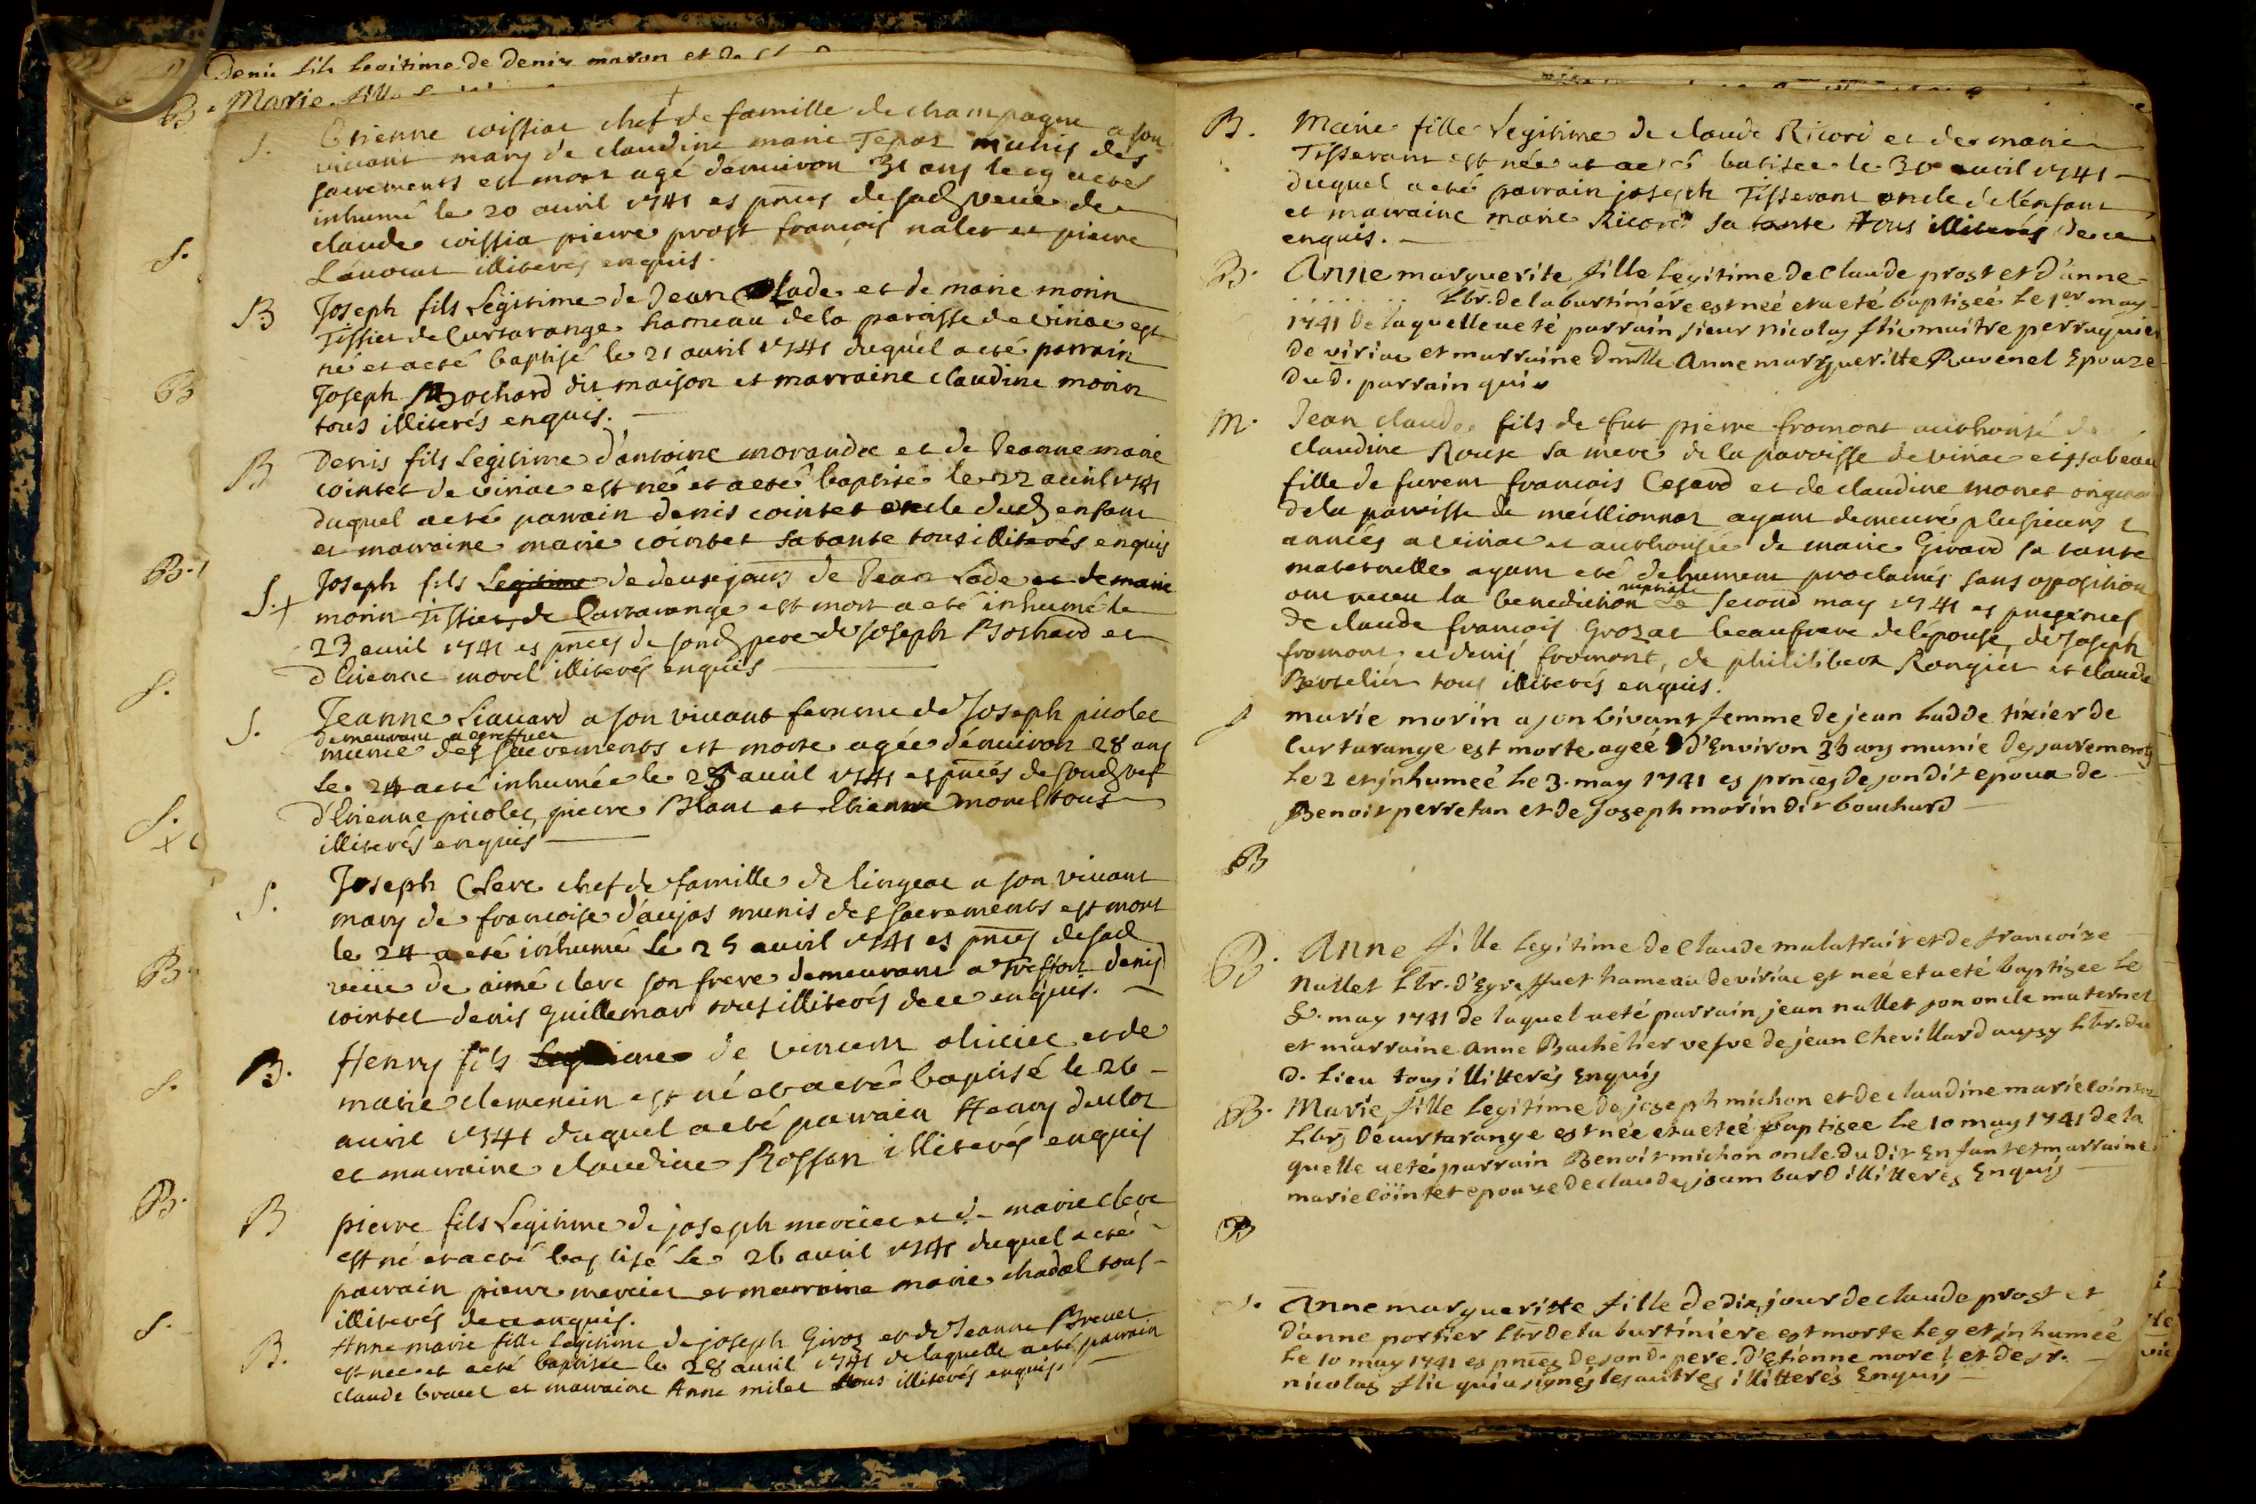 Denis fils legitime de denis maron et de
B. Marie fille
S. Etienne coissiat chef de famille de champagne a son
vivant mary de claudine marie Tepat munis des
sacrements est mort agé d'environ 31 ans le 19 a eté
inhumé le 20 avril 1741 es pnces de sad veüe de
claude coissia pierre prost françois nalet et pierre
illiterés enquis.
B Joseph fils Legitime de Jean Lade et de marie morin
Tissier de Curtarange hameau de la paroisse de viriac est
né et a eté baptisé le 21 avril 1741 duquel a eté parrain
Joseph Bochard dit maison et marraine claudine morin
tous illiterés enquis.
B Denis fils Legitime d'antoine morandat et de Jeanne marie
cointet de viriac est né et a eté baptisé le 22 avril 1741
duquel a eté parrain denis cointet oncle dud enfant
et marraine marie cointet sa tante tous illiterés enquis
S.+ Joseph fils Legitime de deux jours de Jean Lade et de marie
morin Tissier de Curtarange est mort a eté inhumé le
23 avril 1741 es pnces de sond pere de Joseph Bochard et
d'Etienne morel illiterés enquis
S. Jeanne Liauard a son vivant femme de Joseph picolet
demeurant a egreffuet
munie des sacrements est morte agée d'environ 28 ans
le 24 a eté inhumée le 25 avril 1741 es pnces de soud vef
d'Etienne picolet, pierre Blanc et Etienne morel tous
illiterés enquis
S. Joseph Clerc chef de famille de lingeat a son vivant
mary de francoise d'aujas munis des sacrements est mort
le 24 a eté inhumé le 25 avril 1741 es pnces de sad
veüe de aimé clerc son frere demeurant a Treffort denis
cointet denis guillemar tous illiterés de ce enquis.
B. Henry fils Legitime de vincent olivier et de
marie clemencin est né et a eté baptisé le 26
avril 1741 duquel a eté parrain Henry duclos
et marraine claudine Rosson illiterés enquis
B pierre fils Legitime de joseph mercier et de marie clerc
est né et a eté baptisé le 26 avril 1741 duquel a eté
parrain pierre mercier et marraine marie chadal tous
illiterés de ce enquis.
B. Anne marie fille legitime de joseph Giroz et de Jeanne Brevet
est née et a eté baptisée le 28 avril 1741 de laquelle a eté parrain
claude bravet et marraine Anne milet tous illiterés enquis.
B. Marie fille Legitime de claude Ricord et de marie
Tisserant est née et a eté batisee le 30 avril 1741
duquel a eté parrain joseph Tisserant oncle de l'enfant
et marraine marie Ricord sa tante tous illiterés de ce
enquis.
B. Anne marguerite fille legitime de Claude prost et d'anne
. . . . . . . Lbr. de la burtiniere est neé et a eté baptiseé le 1er may
1741 de laquelle a eté parrain sieur nicolas flic maitre perruquier
de viriac et marraine dmlle Anne margueritte Ravenel Epouze
du d. parrain qui
M. Jean claude fils de fut pierre fromont authorisé de
claudine Rouse sa mere de la paroisse de viriac et isabeau
fille de furent francois Cesard et de claudine monet origi
de la paroisse de meillionnat ayant demeuré plusieurs
années a viriac et authorisée de marie Girard sa tante
maternelle ayant eté dehument proclamés sans opposition
ont receu la benediction nuptiale Le second may 1741 es presences
de claude françois Grozat beaufrere de l'épouse, de Joseph
fromont, et denis fromont, de philibert Rongier et claude
Bertelier tous illiterés enquis.
S marie morin a son vivant femme de jean ladde tixier de
Curtarange est morte ageé d'Environ 36 ans munie des sacrements
le 2 et inhumeé le 3. may 1741 es prnces de son dit epoux de
Benoit perretan et de Joseph morin dit bouchard
B
B. Anne fille legitime de Claude malatrait et de francoize
nallet Lbr. d'Egreffuet hameau de viriac est neé et a eté baptizee le
8. may 1741 de laquel a eté parrain jean nallet son oncle maternel
et marraine Anne Bachelier vefve de jean Chevillard aussy Lbr. du
d. lieu tous illitterés Enquis
B. Marie fille legitime de joseph michon et de claudine marie cointet
Lbr de curtarange est née et a eteé baptizee le 10 may 1741 de la
quelle a eté parrain Benoit michon oncle du dit Enfant et marraine
marie cointet epouze de claude joumbard illitteres Enquis
B
S. Anne margueritte fille de dix jour de claude prost et
d'anne portier Lbr de la burtiniere est morte le 9 et inhumeé
le 10 may 1741 es pnces de son d. pere. d'Etienne morel et de sr.
nicolas flic qui a signés les autres illitterés Enquis